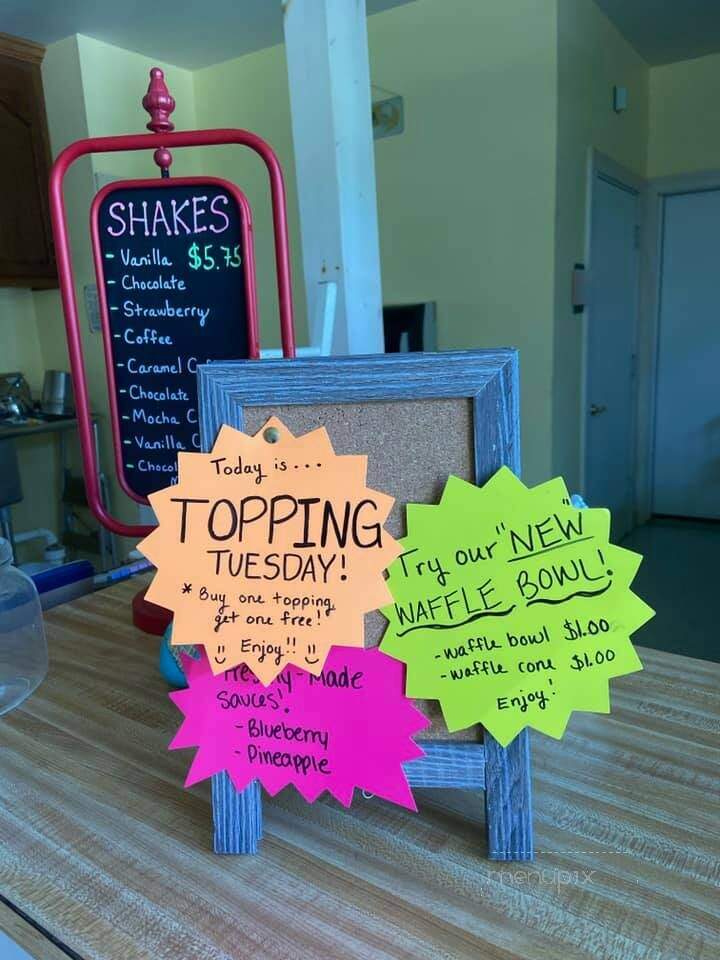 SHAKES
- Vanilla $5.75
- Chocolate
- Strawberry
- Coffee
- Caramel C
- Chocolate
- Mocha C
- Vanilla C
- Chocol
Today is...
TOPPING
TUESDAY!
* Buy one topping,
get one free!
Enjoy!!
Try our "NEW"
WAFFLE BOWL!
- waffle bowl $1.00
- waffle cone $1.00
Enjoy!
Freshly-Made
Sauces!
- Blueberry
- Pineapple
menupix